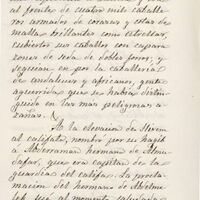 al frente de cuatro mil caballe
ros armados de corazas y cotas de
mallas brillantes como estrellas,
cubiertos sus caballos con capara
zones de seda de dobles forros, y
seguian en pos la caballeria
de andaluces y africanos, gente
aguerrida que se habia distin
guido en las mas peligrosas a
zañas.
A la elevacion de Hixem
al califato, nombró por su hagib
á Abderraman hermano de Almu
dafar, que era capitan de la
guardia del califa. La procla
macion del hermano de Abdelme
lek fue al momento saludada